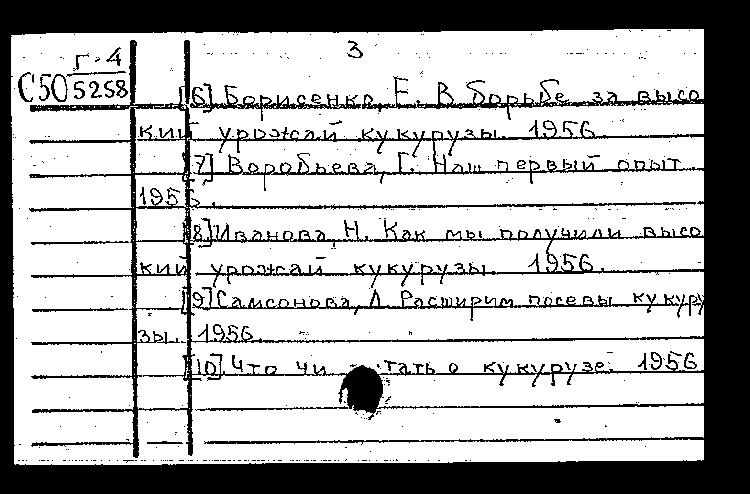 3
Г-4
С50 5258
[6] Борисенко, Е. В борьбе за высо
кий урожай кукурузы. 1956.
[7] Воробьева, Г. Наш первый опыт
1956.
[8] Иванова, Н. Как мы получили высо
кий урожай кукурузы. 1956.
[9] Самсонова, Л. Расширим посевы кукуру
зы. 1956.
[10]. Что читать о кукурузе. 1956